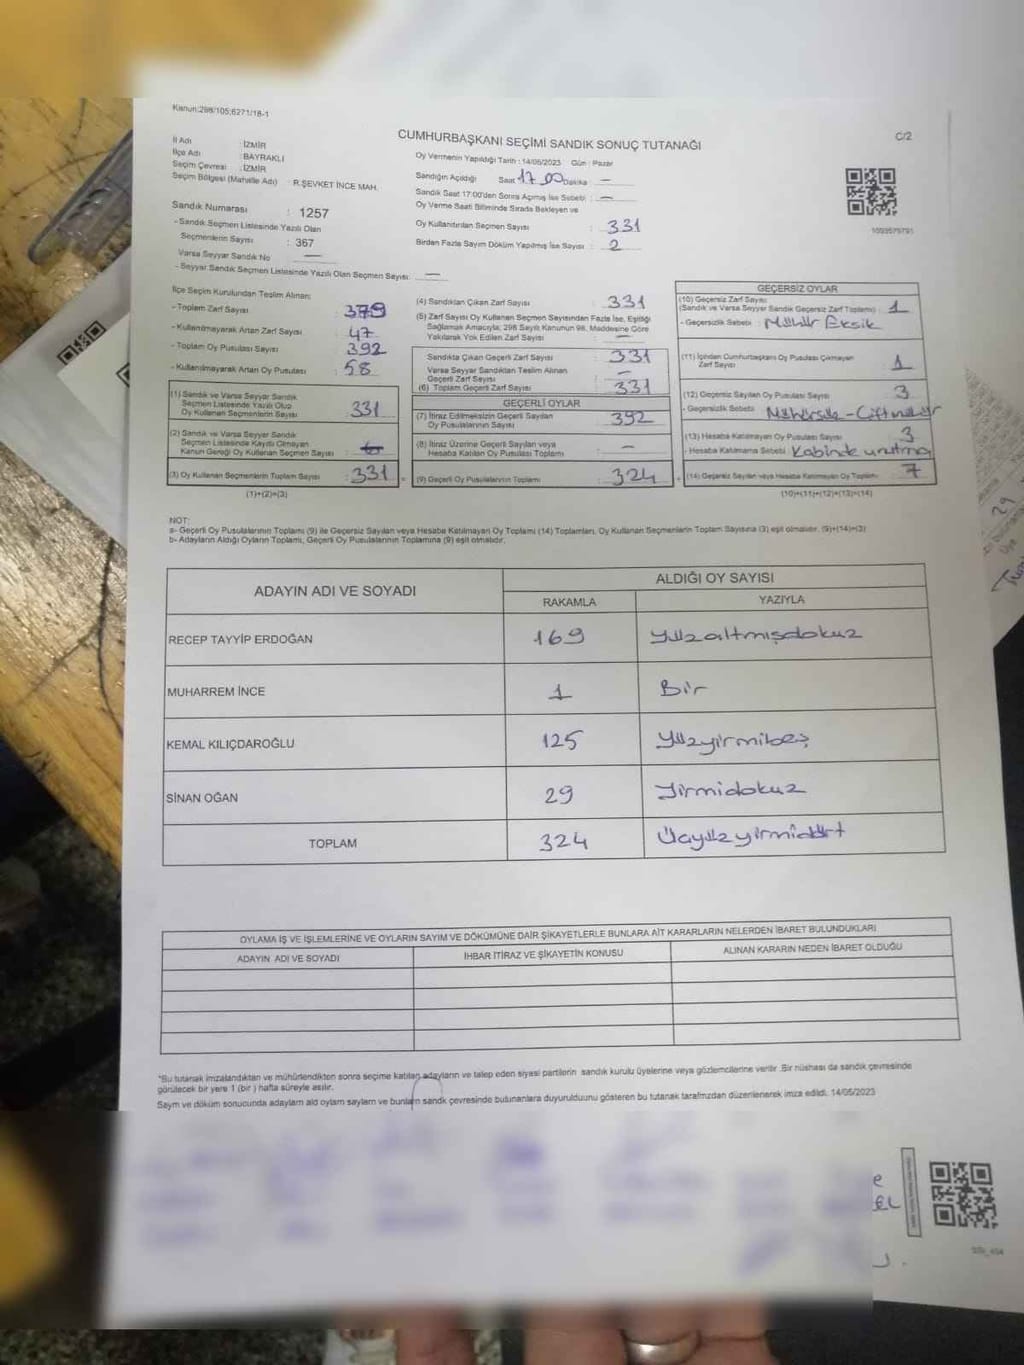 Kanun:298/105;6271/18-1
C/2
CUMHURBAŞKANI SEÇİMİ SANDIK SONUÇ TUTANAĞI
İl Adı : İZMİR
İlçe Adı : BAYRAKLI
Seçim Çevresi : İZMİR
Seçim Bölgesi (Mahalle Adı) : R.ŞEVKET İNCE MAH.
Sandık Numarası : 1257
- Sandık Seçmen Listesinde Yazılı Olan
Seçmenlerin Sayısı : 367
Varsa Seyyar Sandık No —
- Seyyar Sandık Seçmen Listesinde Yazılı Olan Seçmen Sayısı: —
Oy Vermenin Yapıldığı Tarih : 14/05/2023 Gün : Pazar
Sandığın Açıldığı Saat 17.00 Dakika —
Sandık Saat 17:00'den Sonra Açılmış İse Sebebi : —
Oy Verme Saati Bitiminde Sırada Bekleyen ve
Oy Kullandırılan Seçmen Sayısı : 331
Birden Fazla Sayım Döküm Yapılmış İse Sayısı : 2
1093579791
İlçe Seçim Kurulundan Teslim Alınan:
- Toplam Zarf Sayısı : 379
- Kullanılmayarak Artan Zarf Sayısı : 47
- Toplam Oy Pusulası Sayısı : 392
- Kullanılmayarak Artan Oy Pusulası : 58
(1) Sandık ve Varsa Seyyar Sandık
Seçmen Listesinde Yazılı Olup
Oy Kullanan Seçmenlerin Sayısı : 331
(2) Sandık ve Varsa Seyyar Sandık
Seçmen Listesinde Kayıtlı Olmayan
Kanun Gereği Oy Kullanan Seçmen Sayısı :
(3) Oy Kullanan Seçmenlerin Toplam Sayısı : 331
(1)+(2)=(3)
(4) Sandıktan Çıkan Zarf Sayısı : 331
(5) Zarf Sayısı Oy Kullanan Seçmen Sayısından Fazla İse, Eşitliği
Sağlamak Amacıyla; 298 Sayılı Kanunun 98. Maddesine Göre
Yakılarak Yok Edilen Zarf Sayısı : —
Sandıkta Çıkan Geçerli Zarf Sayısı : 331
Varsa Seyyar Sandıktan Teslim Alınan
Geçerli Zarf Sayısı : —
(6) Toplam Geçerli Zarf Sayısı : 331
GEÇERLİ OYLAR
(7) İtiraz Edilmeksizin Geçerli Sayılan
Oy Pusulalarının Sayısı : 392
(8) İtiraz Üzerine Geçerli Sayılan veya
Hesaba Katılan Oy Pusulası Toplamı : —
(9) Geçerli Oy Pusulalarının Toplamı : 324
GEÇERSİZ OYLAR
(10) Geçersiz Zarf Sayısı
(Sandık ve Varsa Seyyar Sandık Geçersiz Zarf Toplamı) : 1
- Geçersizlik Sebebi : Mühür Eksik
(11) İçinden Cumhurbaşkanı Oy Pusulası Çıkmayan
Zarf Sayısı : 1
(12) Geçersiz Sayılan Oy Pusulası Sayısı : 3
- Geçersizlik Sebebi :
(13) Hesaba Katılmayan Oy Pusulası Sayısı : 3
- Hesaba Katılmama Sebebi : Kabinde unutma
(14) Geçersiz Sayılan veya Hesaba Katılmayan Oy Toplamı : 7
(10)+(11)+(12)+(13)=(14)
NOT:
a- Geçerli Oy Pusulalarının Toplamı (9) ile Geçersiz Sayılan veya Hesaba Katılmayan Oy Toplamı (14) Toplamları, Oy Kullanan Seçmenlerin Toplam Sayısına (3) eşit olmalıdır. (9)+(14)=(3)
b- Adayların Aldığı Oyların Toplamı, Geçerli Oy Pusulalarının Toplamına (9) eşit olmalıdır.
ADAYIN ADI VE SOYADI
ALDIĞI OY SAYISI
RAKAMLA YAZIYLA
RECEP TAYYİP ERDOĞAN 169 Yüzaltmışdokuz
MUHARREM İNCE 1 Bir
KEMAL KILIÇDAROĞLU 125 Yüzyirmibeş
SİNAN OĞAN 29 Yirmidokuz
TOPLAM 324 Üçyüzyirmidört
OYLAMA İŞ VE İŞLEMLERİNE VE OYLARIN SAYIM VE DÖKÜMÜNE DAİR ŞİKAYETLERLE BUNLARA AİT KARARLARIN NELERDEN İBARET BULUNDUKLARI
ADAYIN ADI VE SOYADI İHBAR İTİRAZ VE ŞİKAYETİN KONUSU ALINAN KARARIN NEDEN İBARET OLDUĞU
*Bu tutanak imzalandıktan ve mühürlendikten sonra seçime katılan adayların ve talep eden siyasi partilerin sandık kurulu üyelerine veya gözlemcilerine verilir. Bir nüshası da sandık çevresinde
görülecek bir yere 1 (bir) hafta süreyle asılır.
Sayım ve döküm sonucunda adayların aldı oyların sayıların ve bunların sandık çevresinde bulunanlara duyurulduğunu gösteren bu tutanak tarafımızdan düzenlenerek imza edildi. 14/05/2023